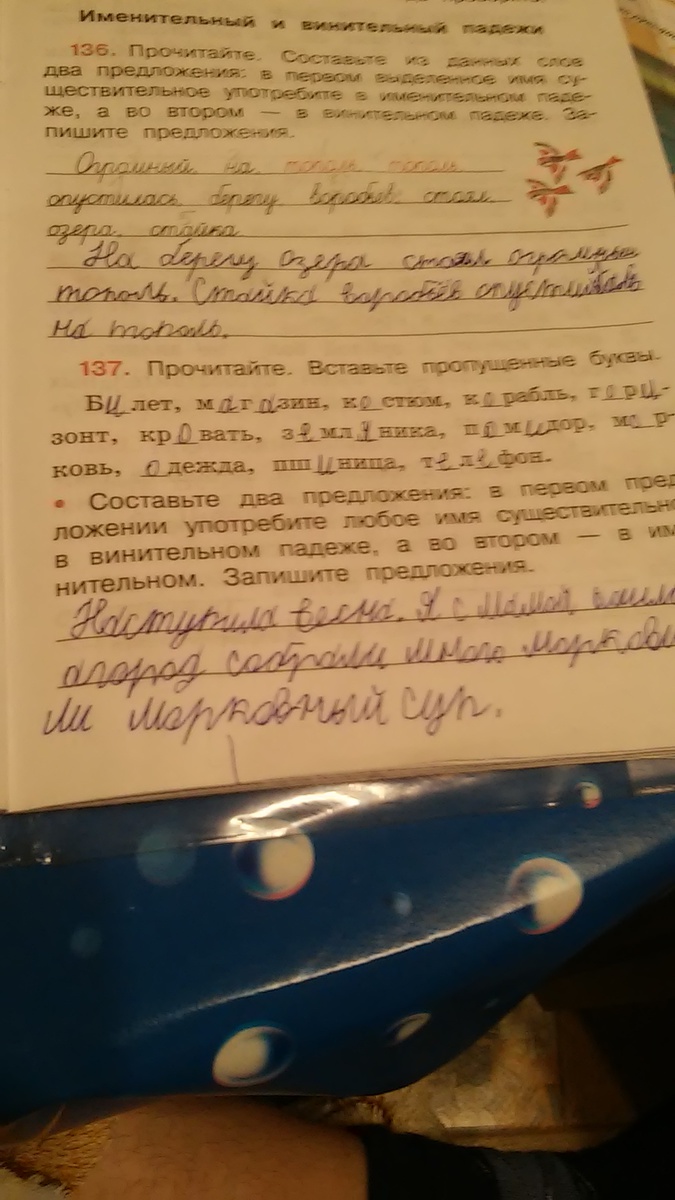 Именительный и винительный падежи
136. Прочитайте. Составьте из данных слов
два предложения: в первом выделенное имя су-
ществительное употребите в именительном паде-
же, а во втором — в винительном падеже. За-
пишите предложения.
Огромный на тополь тополь
опустилась берегу воробьёв стоял
озера стайка
На берегу озера стоял огромный
тополь. Стайка воробьёв опустилась
на тополь.
137. Прочитайте. Вставьте пропущенные буквы.
Билет, магазин, костюм, корабль, гори-
зонт, кровать, земляника, помидор, мор-
ковь, одежда, пшиница, телефон.
• Составьте два предложения: в первом пред
ложении употребите любое имя существительно
в винительном падеже, а во втором — в им
нительном. Запишите предложения.
Наступила весна. Я с мамой
агород собрали много моркови
ли морковный суп.